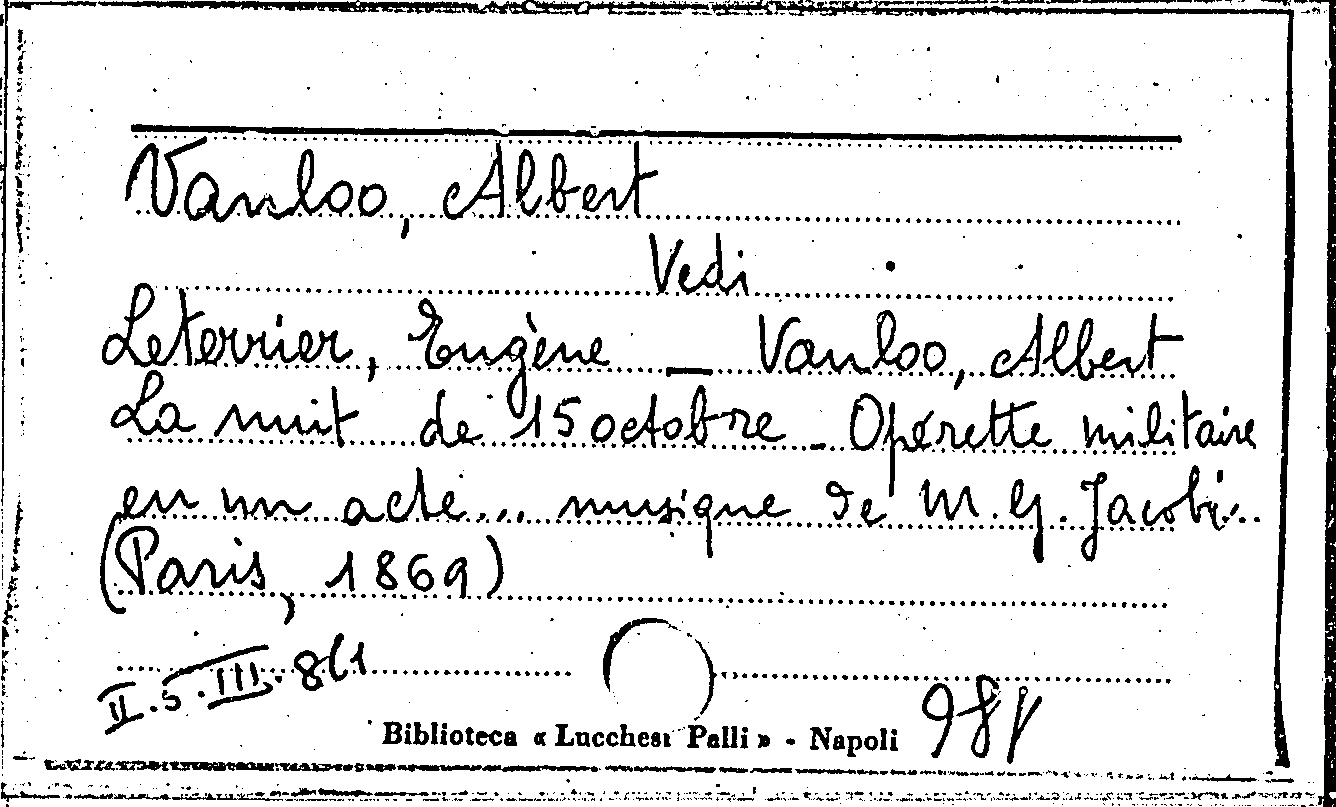 Vanloo, Albert
Vedi
Leterrier, Eugène — Vanloo, Albert
La nuit de 15 octobre - Opérette militaire
en un acte... musique de M. G. Jacobi...
(Paris, 1869)
II.5.III.8(1
Biblioteca « Lucchesi Palli » - Napoli